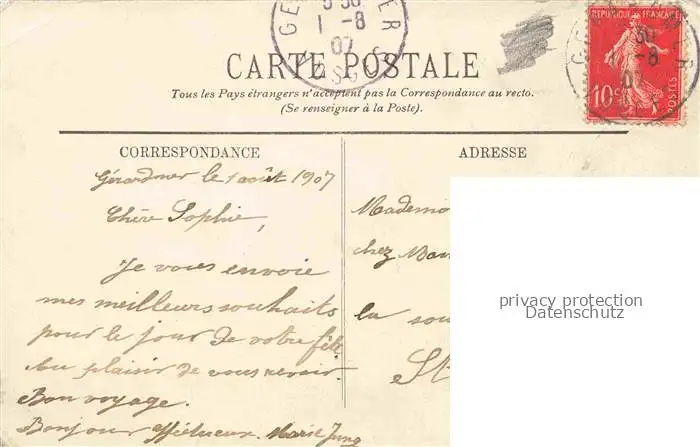 GE ER
30
1 -8
07
VOSGES
REPUBLIQUE FRANÇAISE
10c
POSTES
CARTE POSTALE
Tous les Pays étrangers n'acceptent pas la Correspondance au recto.
(Se renseigner à la Poste).
CORRESPONDANCE
Gérardmer le 1 août 1907
Chère Sophie,
Je vous envoie
mes meilleurs souhaits
pour le jour de votre fête
Au plaisir de vous revoir.
Bon voyage.
Bonjour affectueux. Marie Jung
ADRESSE
Mademo
chez
la
St
privacy protection
Datenschutz